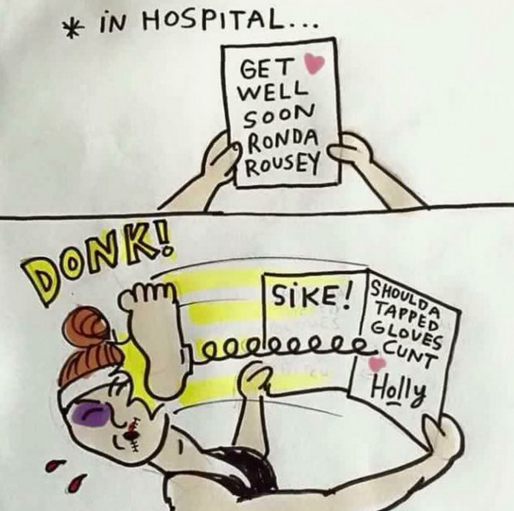 * iN HOSPITAL...
GET
WELL
SOON
RONDA
ROUSEY
DONK!
SiKE!
SHOULDA
TAPPED
GLOVES
CUNT
Holly